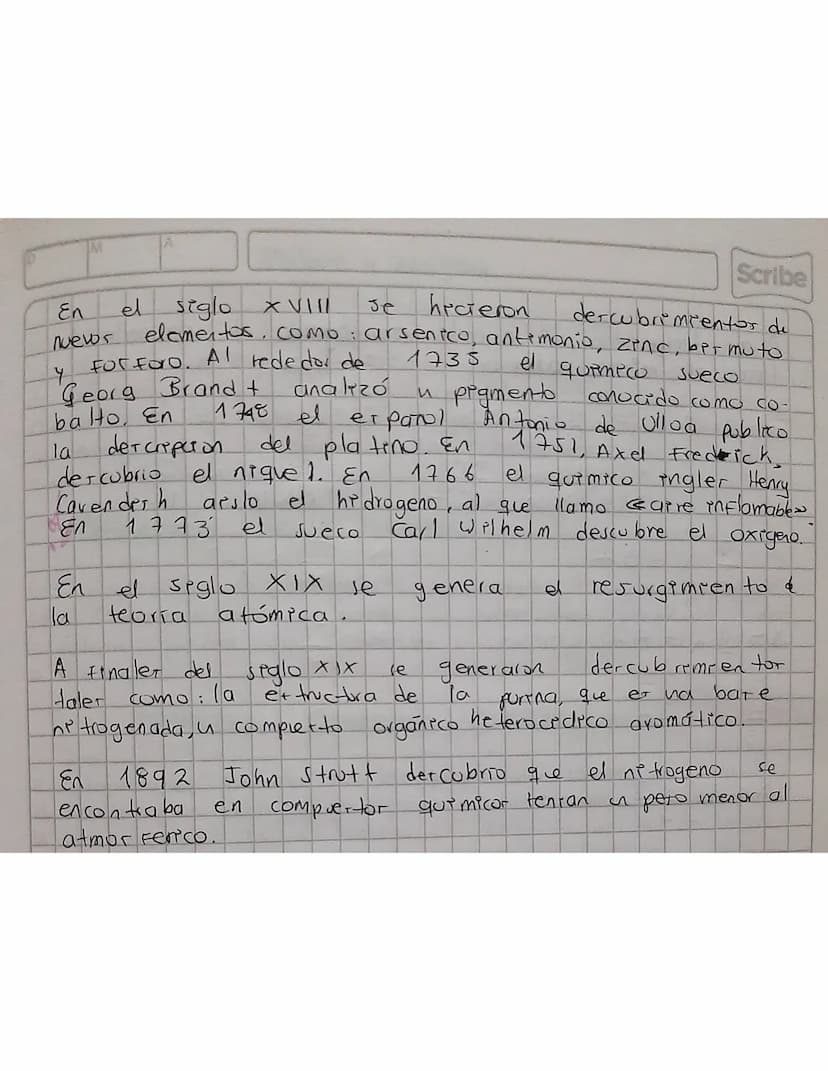 D M A
Scribe
En el siglo XVIII se hicieron descubrimientos de
nuevos elementos. como: arsenico, antimonio, zinc, bismuto
y fosforo. Al rededor de 1735 el quimico sueco
Georg Brandt analizó u pigmento conocido como co-
balto. En 1748 el español Antonio de Ulloa publico
la descripcion del platino. En 1751, Axel Frederick,
descubrio el niquel. En 1766 el quimico ingles Henry
Cavendish aislo el hidrogeno, al que llamo «aire inflamable»
En 1773 el sueco Carl Wilhelm descubre el oxigeno.
En el siglo XIX se genera el resurgimiento d
la teoria atómica.
A finales del siglo XIX se generaron descubrimientos
tales como: la estructura de la purina, que es una base
nitrogenada, u compuesto orgánico heterocíclico aromático.
En 1892 John Strutt descubrio que el nitrogeno se
encontraba en compuestos quimicos tenian u peso menor al
atmosferico.